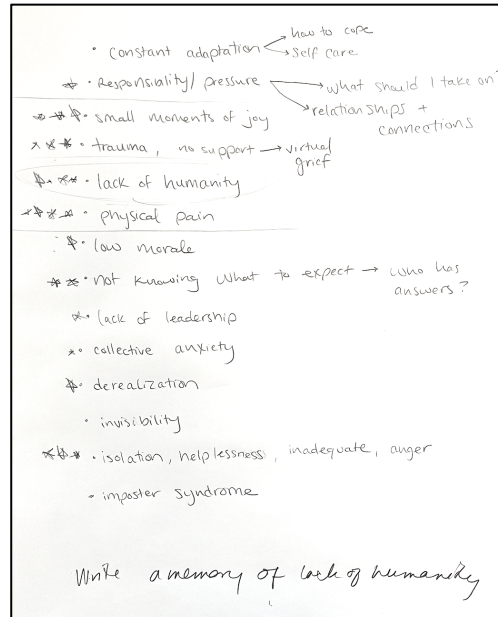 • constant adaptation < how to cope
self care
* • Responsibility/pressure → what should I take on?
→ relationships +
connections
* * * • small moments of joy
* * * • trauma, no support → virtual
grief
* • * * • lack of humanity
* * * * • physical pain
* • low morale
* * • not knowing what to expect → who has
answers?
* • lack of leadership
* • collective anxiety
* • derealization
• invisibility
* * * • isolation, helplessness, inadequate, anger
• imposter syndrome
Write a memory of lack of humanity